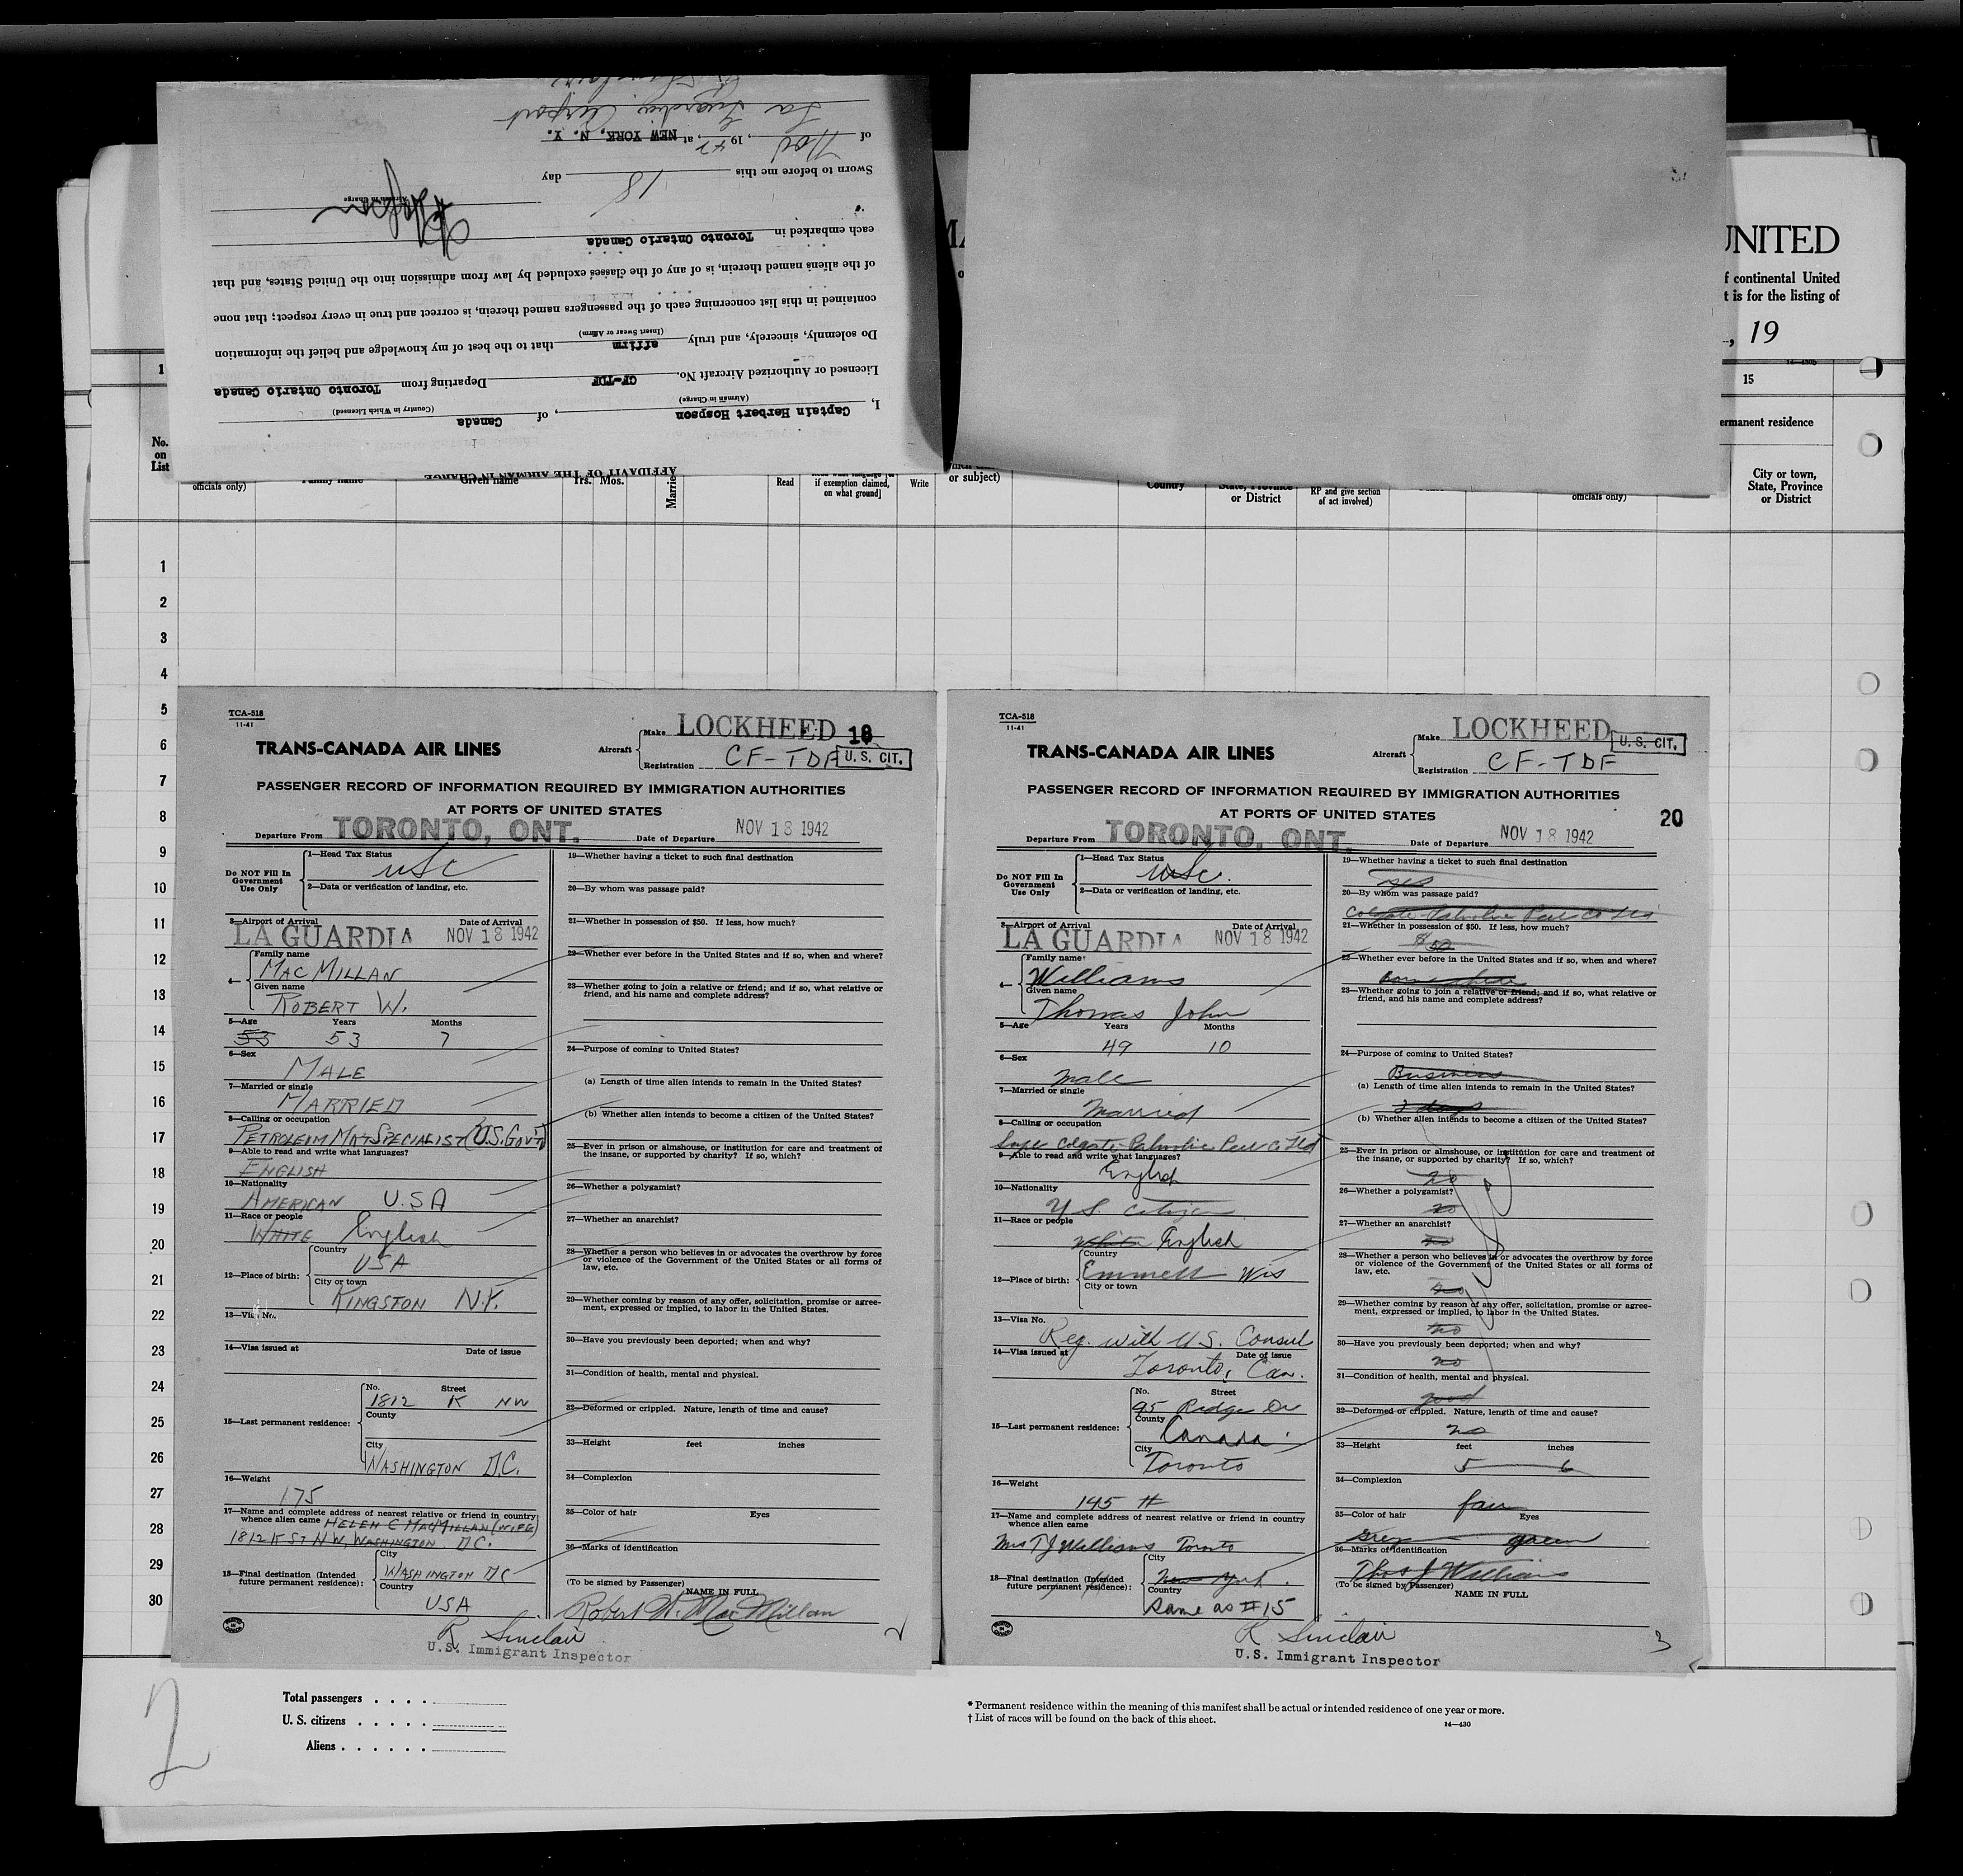 AFFIDAVIT OF THE AIRMAN IN CHARGE
I, Captain Herbert Hopson, of Canada
(Airman in Charge) (Country in Which Licensed)
Licensed or Authorized Aircraft No. CF-TDF Departing from Toronto Ontario Canada
Do solemnly, sincerely, and truly affirm that to the best of my knowledge and belief the information
(Insert Swear or Affirm)
contained in this list concerning each of the passengers named therein, is correct and true in every respect; that none
of the aliens named therein, is of any of the classes excluded by law from admission into the United States, and that
each embarked in Toronto Ontario Canada
Airman in Charge
Sworn to before me this 18 day
of Nov, 1942, at NEW YORK, N. Y.
La Guardia Airport
UNITED
f continental United
t is for the listing of
, 19
14—430b
1
15
ermanent residence
No.
on
List
officials only)
Family name
Given name
Yrs. Mos.
Married
Read
if exemption claimed,
on what ground]
Write
or subject)
Country
State, Province
or District
RP and give section
of act involved)
officials only)
City or town,
State, Province
or District
1
2
3
4
5
6
7
8
9
10
11
12
13
14
15
16
17
18
19
20
21
22
23
24
25
26
27
28
29
30
TCA-518
11-41
TRANS-CANADA AIR LINES
Aircraft
Make LOCKHEED 18
Registration CF-TDF
U. S. CIT.
PASSENGER RECORD OF INFORMATION REQUIRED BY IMMIGRATION AUTHORITIES
AT PORTS OF UNITED STATES
Departure From TORONTO, ONT. Date of Departure NOV 18 1942
Do NOT Fill In
Government
Use Only
1—Head Tax Status
USC
2—Data or verification of landing, etc.
3—Airport of Arrival Date of Arrival
LA GUARDIA NOV 18 1942
4—
Family name
MACMILLAN
Given name
ROBERT W.
5—Age Years Months
53 53 7
6—Sex
MALE
7—Married or single
MARRIED
8—Calling or occupation
PETROLEUM MKT SPECIALIST (U.S. GOVT)
9—Able to read and write what languages?
ENGLISH
10—Nationality
AMERICAN U.S.A
11—Race or people
WHITE English
12—Place of birth:
Country
USA
City or town
KINGSTON N.Y.
13—Visa No.
14—Visa issued at Date of issue
15—Last permanent residence:
No. Street
1812 K NW
County
City
WASHINGTON D.C.
16—Weight
175
17—Name and complete address of nearest relative or friend in country
whence alien came HELEN C MACMILLAN (WIFE)
1812 K ST N W, WASHINGTON D.C.
18—Final destination (Intended
future permanent residence):
City
WASHINGTON DC
Country
USA
19—Whether having a ticket to such final destination
20—By whom was passage paid?
21—Whether in possession of $50. If less, how much?
22—Whether ever before in the United States and if so, when and where?
23—Whether going to join a relative or friend; and if so, what relative or
friend, and his name and complete address?
24—Purpose of coming to United States?
(a) Length of time alien intends to remain in the United States?
(b) Whether alien intends to become a citizen of the United States?
25—Ever in prison or almshouse, or institution for care and treatment of
the insane, or supported by charity? If so, which?
26—Whether a polygamist?
27—Whether an anarchist?
28—Whether a person who believes in or advocates the overthrow by force
or violence of the Government of the United States or all forms of
law, etc.
29—Whether coming by reason of any offer, solicitation, promise or agree-
ment, expressed or implied, to labor in the United States.
30—Have you previously been deported; when and why?
31—Condition of health, mental and physical.
32—Deformed or crippled. Nature, length of time and cause?
33—Height feet inches
34—Complexion
35—Color of hair Eyes
36—Marks of identification
(To be signed by Passenger) NAME IN FULL
Robert W. MacMillan
2
R Sinclair
U.S. Immigrant Inspector
TCA-518
11-41
TRANS-CANADA AIR LINES
Aircraft
Make LOCKHEED
Registration CF-TDF
U. S. CIT.
PASSENGER RECORD OF INFORMATION REQUIRED BY IMMIGRATION AUTHORITIES
AT PORTS OF UNITED STATES
20
Departure From TORONTO, ONT. Date of Departure NOV 18 1942
Do NOT Fill In
Government
Use Only
1—Head Tax Status
USC.
2—Data or verification of landing, etc.
3—Airport of Arrival Date of Arrival
LA GUARDIA NOV 18 1942
4—
Family name
Williams
Given name
Thomas John
5—Age Years Months
49 10
6—Sex
Male
7—Married or single
Married
8—Calling or occupation
Supt Colgate-Palmolive Peet Co Ltd
9—Able to read and write what languages?
English
10—Nationality
U.S. Citizen
11—Race or people
White English
12—Place of birth:
Country
Emmett Wis
City or town
13—Visa No.
Reg. with U.S. Consul
14—Visa issued at Date of issue
Toronto, Can.
15—Last permanent residence:
No. Street
95 Ridge Dr
County
Canada
City
Toronto
16—Weight
145 #
17—Name and complete address of nearest relative or friend in country
whence alien came
Mrs T J Williams Toronto
18—Final destination (Intended
future permanent residence):
City
New York.
Country
Same as #15
19—Whether having a ticket to such final destination
yes
20—By whom was passage paid?
Colgate-Palmolive Peet Co Ltd
21—Whether in possession of $50. If less, how much?
$50
22—Whether ever before in the United States and if so, when and where?
born there
23—Whether going to join a relative or friend; and if so, what relative or
friend, and his name and complete address?
24—Purpose of coming to United States?
Business
(a) Length of time alien intends to remain in the United States?
2 days
(b) Whether alien intends to become a citizen of the United States?
25—Ever in prison or almshouse, or institution for care and treatment of
the insane, or supported by charity? If so, which?
no
26—Whether a polygamist?
no
27—Whether an anarchist?
no
28—Whether a person who believes in or advocates the overthrow by force
or violence of the Government of the United States or all forms of
law, etc.
no
29—Whether coming by reason of any offer, solicitation, promise or agree-
ment, expressed or implied, to labor in the United States.
no
30—Have you previously been deported; when and why?
no
31—Condition of health, mental and physical.
good
32—Deformed or crippled. Nature, length of time and cause?
no
33—Height feet inches
5 6
34—Complexion
fair
35—Color of hair Eyes
grey green
36—Marks of identification
Thos J Williams
(To be signed by Passenger)
NAME IN FULL
R Sinclair
U.S. Immigrant Inspector
3
2
Total passengers . . . .
U. S. citizens . . . . .
Aliens . . . . . .
* Permanent residence within the meaning of this manifest shall be actual or intended residence of one year or more.
† List of races will be found on the back of this sheet.
14—430